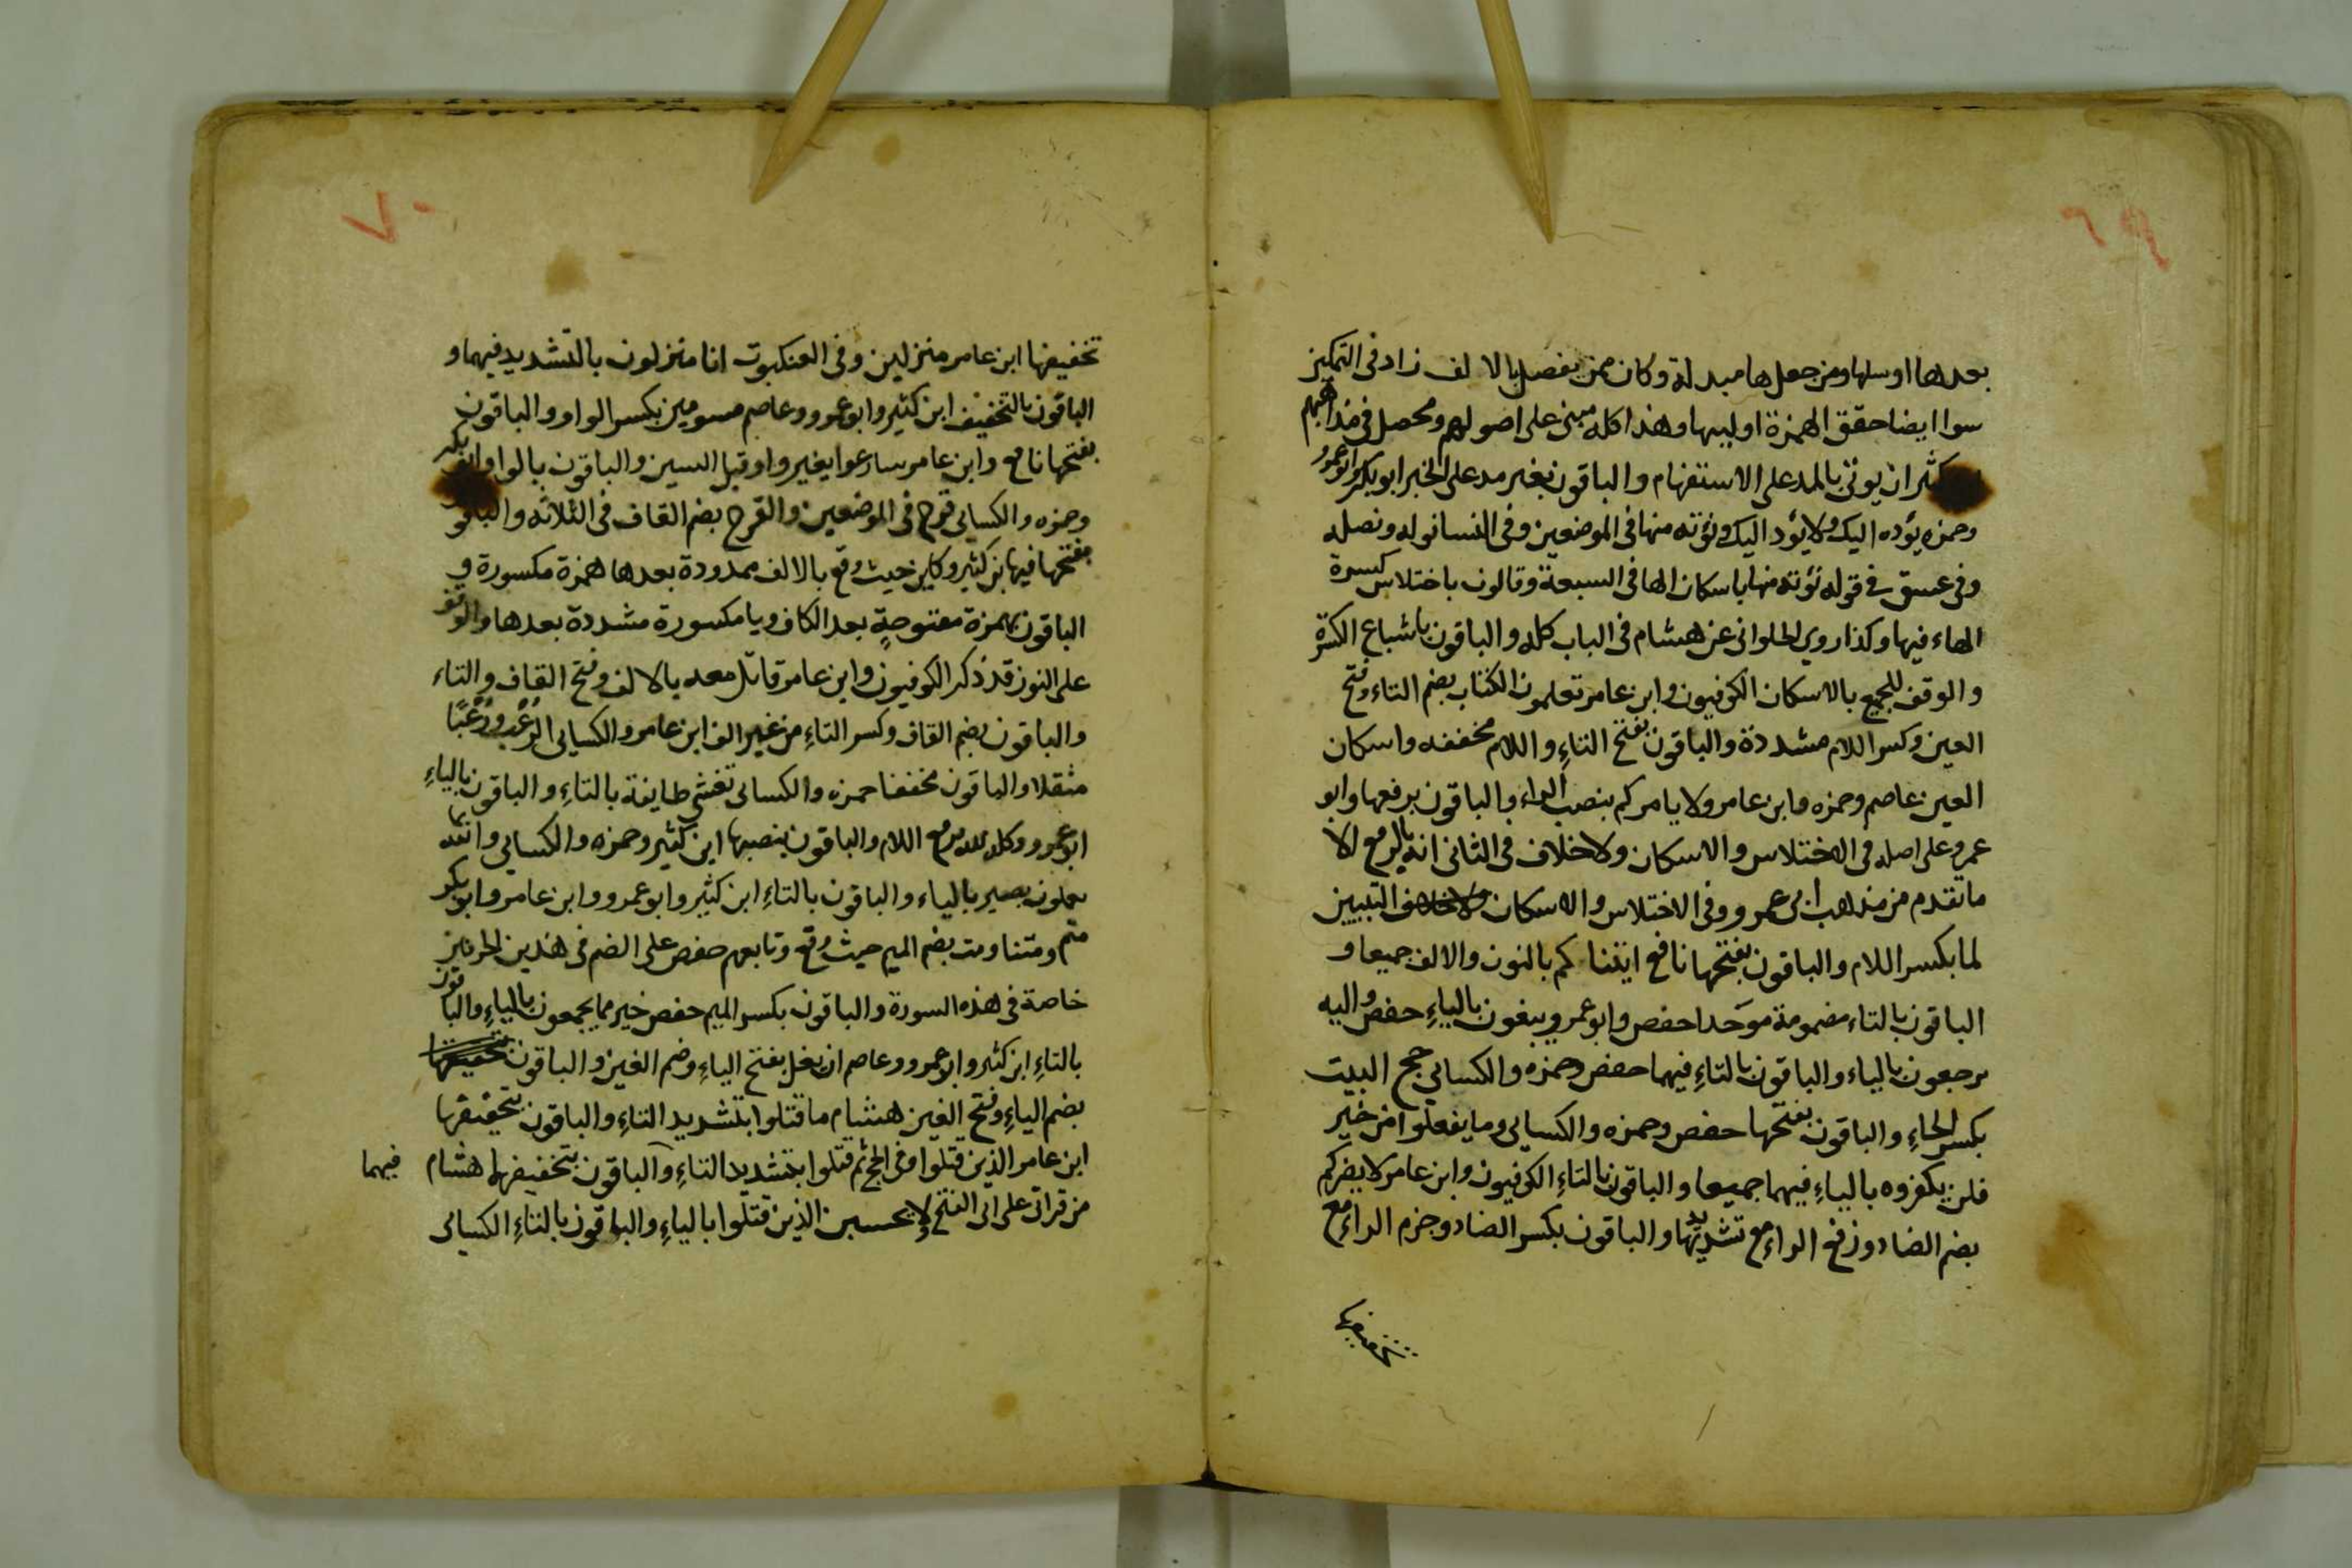 ٦٩
بعدها او سلها ومن جعلها مبدلة وكان ممن يفصل بالالف زاد في التمكين
سوا ايضا حقق الهمزة او لينها وهذا كله مبنى على اصولهم ومحصل في مذاهبهم
كثير ان يوتى بالمد على الاستفهام والباقون بغير مد على الخبر ابو بكر وابو عمرو
وحمزه يؤده اليك ولا يؤد اليك ونؤته منها في الموضعين وفي النسا نوله ونصله
وفي عسق في قوله نؤته منها باسكان الها في السبعة وقالون باختلاس كسرة
الهاء فيها وكذا روى الحلواني عن هشام في الباب كله والباقون باشباع الكسرة
والوقف للجميع بالاسكان الكوفيون وابن عامر تعلمون الكتاب بضم التاء وفتح
العين وكسر اللام مشددة والباقون بفتح التاءِ واللام مخففه واسكان
العين عاصم وحمزه وابن عامر ولا يامركم بنصب الراء والباقون برفعها وابو
عمرو على اصله في الاختلاس والاسكان ولا خلاف في الثاني انه بالرفع الا
ما تقدم من مذهب ابي عمرو وفي الاختلاس والاسكان ولا خلاف التبيين
لما بكسر اللام والباقون بفتحها نافع اتيناكم بالنون والالف جميعا و
الباقون بالتاء مضمومة موحدا حفص وابو عمرو يبغون بالياءِ حفص واليه
يرجعون بالياء والباقون بالتاءِ فيهما حفص وحمزه والكسائي حج البيت
بكسر الحاءِ والباقون بفتحها حفص وحمزه والكسائي وما يفعلوا من خير
فلن يكفروه بالياءِ فيهما جميعا والباقون بالتاءِ الكوفيون وابن عامر لا يضركم
بضم الضاد ورفع الراءِ مع تشديدها والباقون بكسر الضاد وجزم الراءِ مع
٧٠
تخفيفها ابن عامر منزلين وفي العنكبوت انا منزلون بالتشديد فيهما و
الباقون بالتخفيف ابن كثير وابو عمرو وعاصم مسومين بكسر الواو والباقون
بفتحها نافع وابن عامر سارعوا بغير واو قبل السين والباقون بالواو ابو بكر
وحمزه والكسائي قرح في الموضعين والقرح بضم القاف في الثلاثه والباقو
بفتحها فيها بن كثير وكاين حيث وقع بالالف ممدودة بعدها همزة مكسورة و
الباقون بهمزة مفتوحةٍ بعد الكاف ويا مكسورة مشددة بعدها والوقف
على النون قد ذكر الكوفيون وابن عامر قاتل معه بالالف وفتح القاف والتاء
والباقون بضم القاف وكسر التاءِ من غير الف ابن عامر والكسائي الرُعُب ورُعُبًا
مثقلا والباقون مخففا حمزه والكسائي تغشي طايفة بالتاءِ والباقون بالياءِ
ابو عمرو وكله لله برفع اللام والباقون بنصبها ابن كثير وحمزه والكسائي والله بما
يعملون بصير بالياء والباقون بالتاءِ ابن كثير وابو عمرو وابن عامر وابو بكر
متم ومتنا ومت بضم الميم حيث وقع وتابعهم حفص على الضم في هذين الحرفين
خاصة في هذه السورة والباقون بكسر الميم حفص خير مما يجمعون بالياءِ والباقون
بالتاءِ ابن كثير وابو عمرو وعاصم ان يغل بفتح الياءِ وضم الغين والباقون بتخفيفها
بضم الياءِ وفتح الغين هشام ما قتلوا بتشديد التاءِ والباقون بتخفيفها
ابن عامر الذين قتلوا وفي الحج ثم قتلوا بتشديد التاءِ والباقون بتخفيفها هشام فيهما
من قراتي على ابي الفتح لا يحسبن الذين قتلوا بالياءِ والباقون بالتاءِ الكسائي